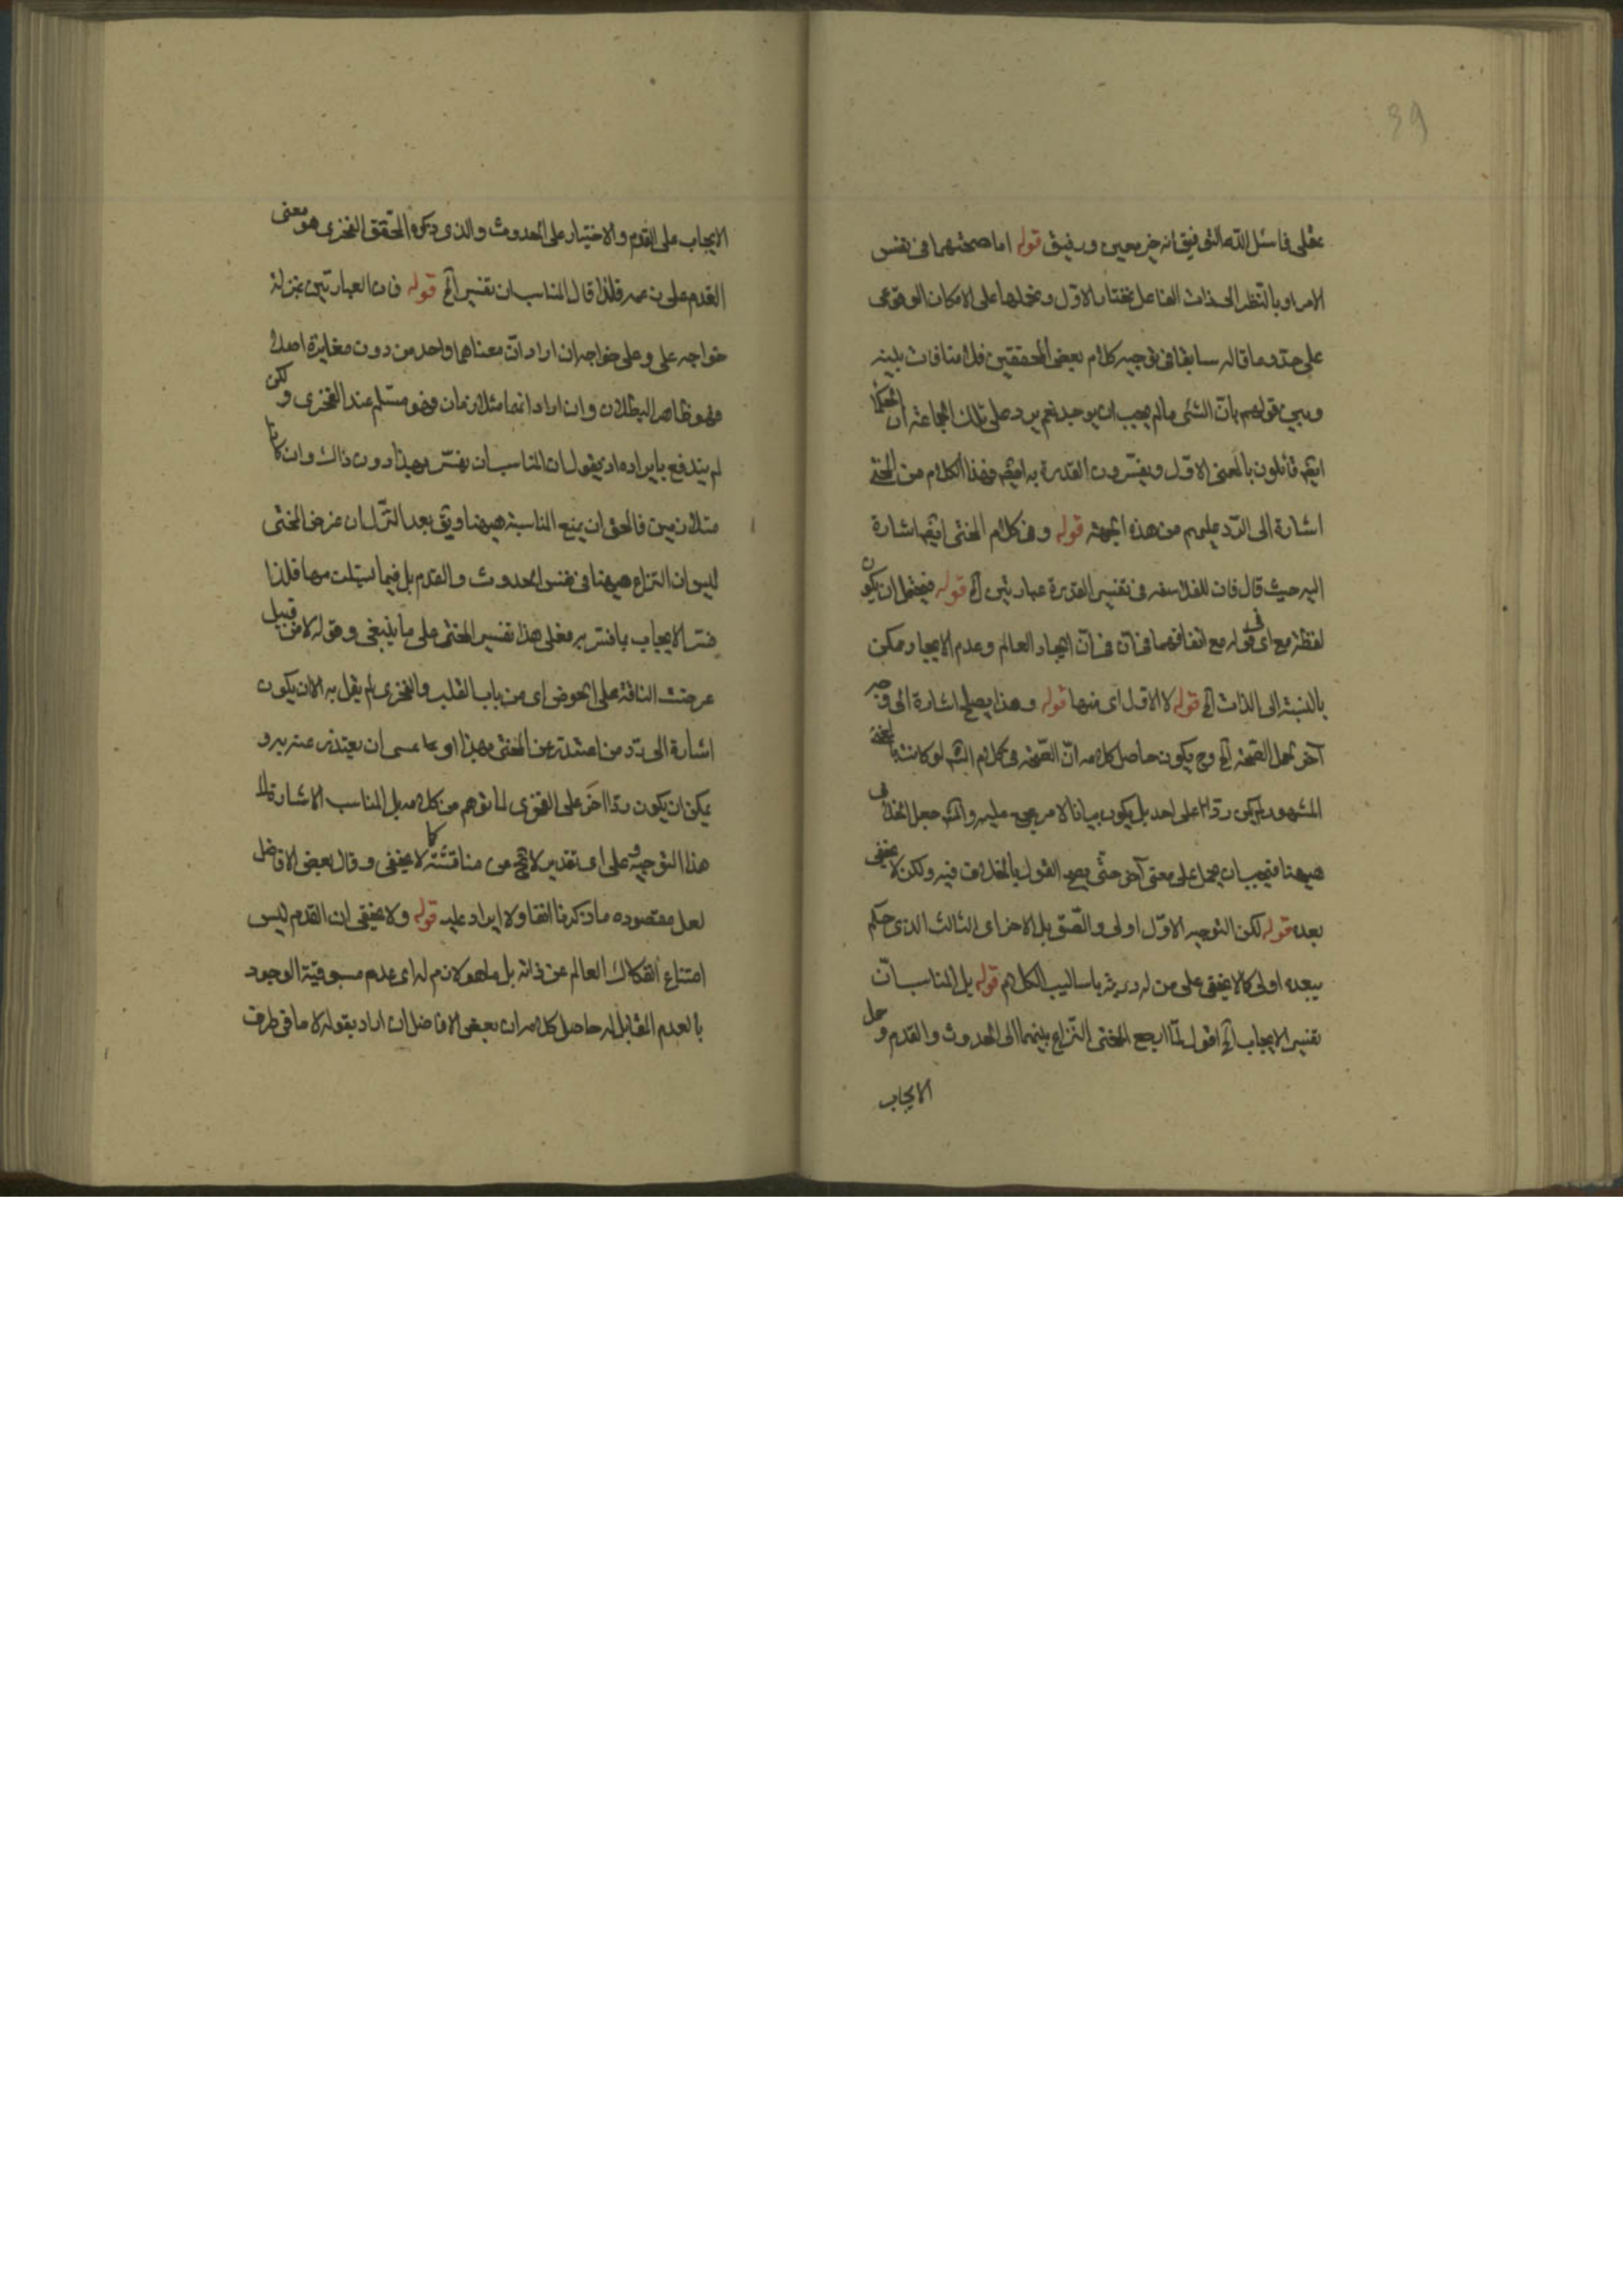 39
عقلى فاسئل الله التوفيق انه خير معين ورفيق قوله اما صحتهما فى نفس
الامر او بالنظر الى ذات الفاعل نختار الاول ونحملها على الامكان الوقوعى
على حذو ما قاله سابقا فى توجيه كلام بعض المحققين فلا منافات بينه
وبين قولهم بان الشئ ما لم يجب لم يوجد نعم يرد على تلك الجماعة ان الحكما
ايضا قائلون بالمعنى الاول ويفسرون القدرة به ايضا وهذا الكلام من المحشى
اشارة الى الرد عليهم من هذه الجهة قوله وفى كلام المحشى ايضا اشارة
اليه حيث قال فان للفلاسفه فى تفسير القدرة عبارتين الخ قوله فيحتمل ان يكون
لفظة مع اى فى قوله مع اتفاقهما فى ان ايجاد العالم وعدم الايجاد ممكن
بالنسبة الى الذات الخ قوله لا الاول اى منها قوله وهذا يصلح اشارة الى وجه
آخر لحمل الصحة الخ وح يكون حاصل كلامه ان الصحة فى كلام الش لو كانت بالمعنى
المشهور لم يكن ردا على احد بل يكون بيانا لامر مجمع عليه والش جعل الخلاف
ههنا فيجب ان يحمل على معنى آخر حتى يصح القول بالخلاف فيه ولكن لا يخفى
بعده قوله لكن التوجيه الاول اولى والصق بل الاخر اى الثالث الذى حكم
ببعده اولى كما لا يخفى على من له دربة باساليب الكلام قوله بل المناسب ان
تفسير الايجاب الخ اقول لما ارجع المحشى النزاع بينهما الى الحدوث والقدم وحمل
الايجاب
الايجاب على القدم والاختيار على الحدوث والذى ذكره المحقق الفخرى هو معنى
القدم على زعمه فلذا قال المناسب ان تفسير الخ قوله فان العبارتين بمنزلة
خواجه على وعلى خواجه ان اراد ان معناهما واحد من دون مغايرة اصلا
فهو ظاهر البطلان وان اراد انهما متلازمان فهو مسلم عند الفخرى ولكن
لم يندفع به ايراده اذ يقول ان المناسب ان يفسر بهذا دون ذاك وان كانا
متلازمين فالحق ان يمنع المناسبة ههنا ويق بعد التنزل ان غرض المحشى
ليس ان النزاع ههنا فى نفس الحدوث والقدم بل فيما يستلزمهما فلذا
فسر الايجاب بما فسر به فعلى هذا تفسير المحشى على ما ينبغى وقوله لا من قبيل
عرضت الناقة على الحوض اى من باب القلب والفخرى لم يقل به الا ان يكون
اشارة الى رد من اعتذر عن المحشى بهذا او عما عسى ان يعتذر عنه به و
يمكن ان يكون ردا اخر على الفخرى لما توهم من كلامه بل المناسب الاشارة الى
هذا التوجيه وعلى اى تقدير لا يخ من مناقشة كما لا يخفى وقال بعض الافاضل
لعل مقصوده ما ذكرنا انفا ولا ايراد عليه قوله ولا يخفى ان القدم ليس
امتناع انفكاك العالم عن ذاته بل ما هو لازم له اى عدم مسبوقية الوجود
بالعدم المقابل له حاصل كلامه ان بعض الافاضل ان اراد بقوله لا ما فى طرف